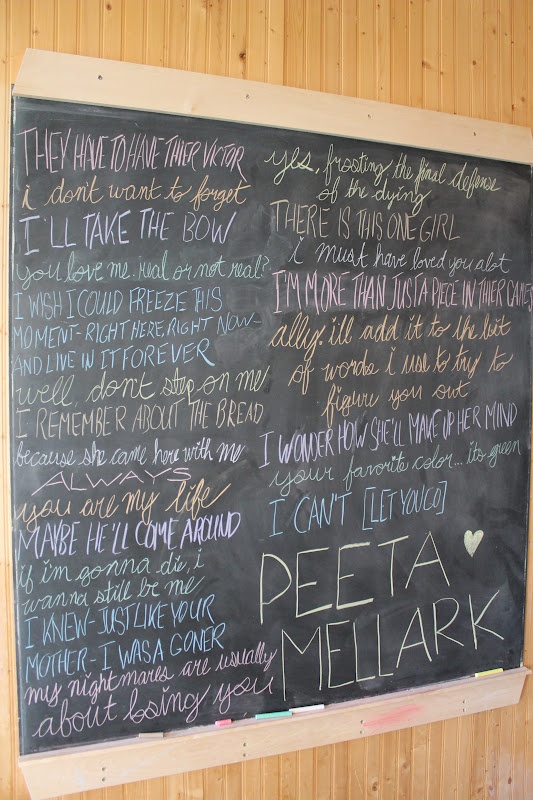 THEY HAVE TO HAVE THIER VICTOR
i don't want to forget
I'LL TAKE THE BOW
you love me. real or not real?
I WISH I COULD FREEZE THIS
MOMENT - RIGHT HERE, RIGHT NOW -
AND LIVE IN IT FOREVER
well, don't step on me
I REMEMBER ABOUT THE BREAD
because she came here with me
ALWAYS
you are my life
MAYBE HE'LL COME AROUND
if i'm gonna die, i
wanna still be me
I KNEW - JUST LIKE YOUR
MOTHER - I WAS A GONER
my nightmares are usually
about losing you
yes, frosting. the final defense
of the dying
THERE IS THIS ONE GIRL
i must have loved you alot
I'M MORE THAN JUST A PIECE IN THIER GAMES
ally. i'll add it to the list
of words i use to try to
figure you out
I WONDER HOW SHE'LL MAKE UP HER MIND
your favorite color... its green
I CAN'T [LET YOU GO]
PEETA
MELLARK